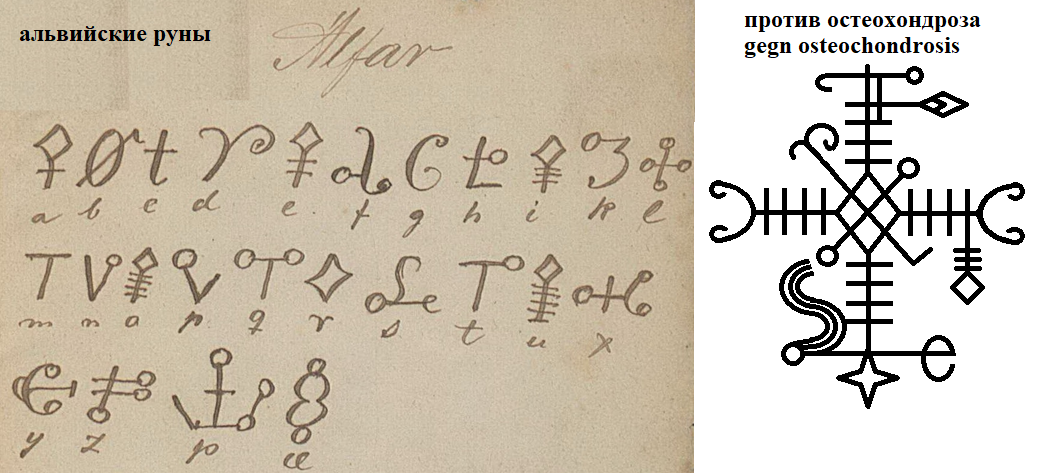 альвийские руны
Alfar
a b c d e f g h i k l
m n o p q r s t u x
y z þ æ
против остеохондроза
gegn osteochondrosis